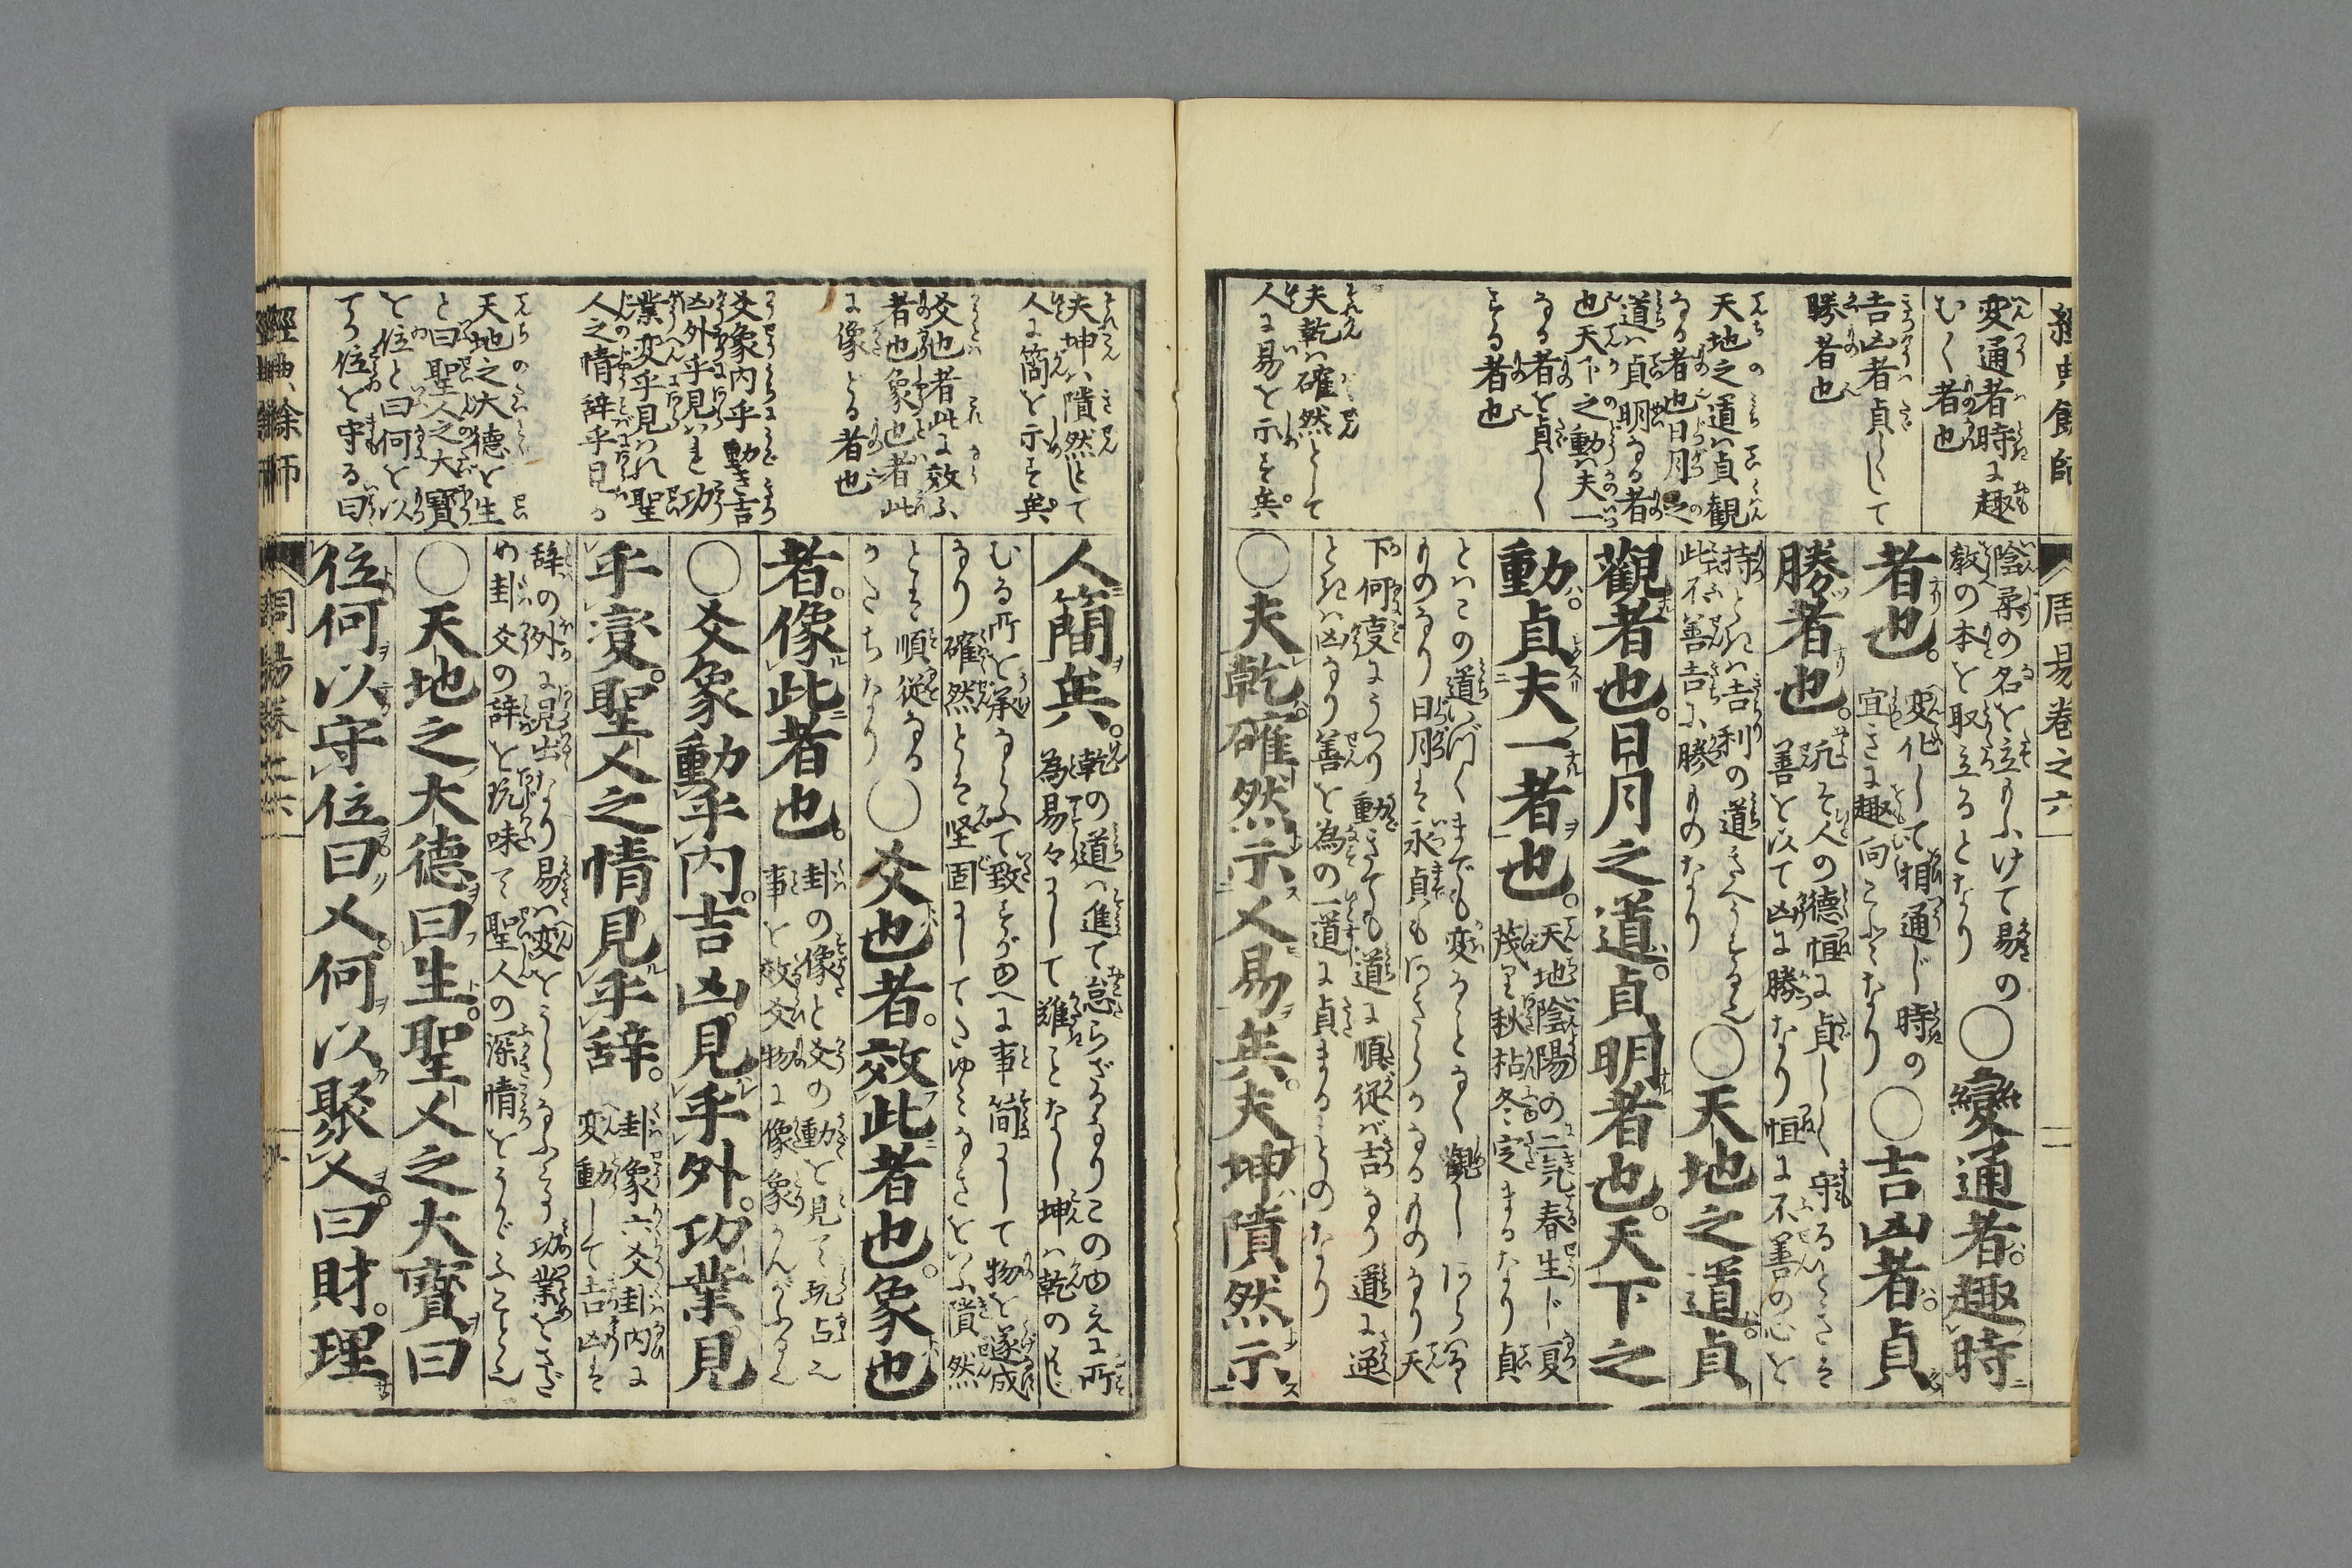 経典餘師
変通者時に趣
むく者也
吉凶者貞しして
勝者也
天地之道ハ貞観
なる者也日月之
道ハ貞明なる者
也天下之動ハ夫一
なる者を貞し
する者也
夫乾ハ確然として
人に易を示す矣
周易巻之六
陰柔の名を立もふけて易の
教の本を取立るとなり
○變通者趣時
者也
変化して相通じ時の
宜きに趣向ことなり
○吉凶者貞
勝者也
凡そ人の徳恒に貞しく守るときは
善を以て凶に勝なり恒に不善の心を
持ときハ吉利の道
此不善吉に勝ものなり
○天地之道貞
觀者也日月之道貞明者也天下之
動貞夫一者也
天地陰陽の二氣春生じ夏
茂り秋枯冬定まるなり貞
とはこの道いづくまでも変ることなく觀し
ものなり日月は永貞もあきらかなるものなり天
下何変にうつり動きても道に順従バ吉なり道に逆
ときハ凶なり善を為の一道に貞まるものなり
○夫乾確然示人易矣夫坤隤然示
夫坤ハ隤然として
人に簡を示す矣
爻也者此に效ふ
者也象也者此
に像どる者也
爻象内乎動き吉
凶外乎見ハれ功
業変乎見ハれ聖
人之情辞乎見る
天地之大徳を生
と曰聖人之大寳
を位と曰何を以
てか位を守る曰
人簡矣
乾の道ハ進て怠らざるなりこのゆえに所
為易々にして難ことなし坤ハ乾の
むる所を承ならふて致すがゆへに事簡にして物を遂成
なり確然とは堅固にしてたゆミなきをいふ隤然
とは順従なる
かたちなり
○爻也者效此者也象也
者像此者也
卦の像と爻の動を見て玩占
事を效爻物に像象
○爻象動乎内吉凶見乎外功業見
乎變聖人之情見乎辞
卦象六爻卦内に
変動して吉凶は
辞の外に見出なり易ハ変を
め卦爻の辞を玩味て聖人の深情を
○天地之大徳曰生聖人之大寳曰
位何以守位曰人何以聚人曰財理